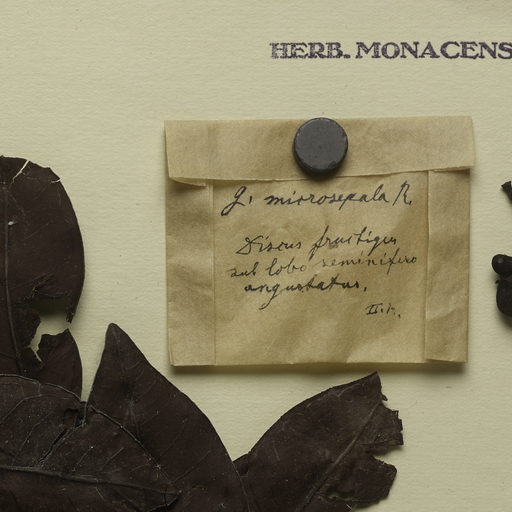 HERB. MONACENS
G. microsepala R.
Discus fructiger
sub lobo seminifero
angustatus.